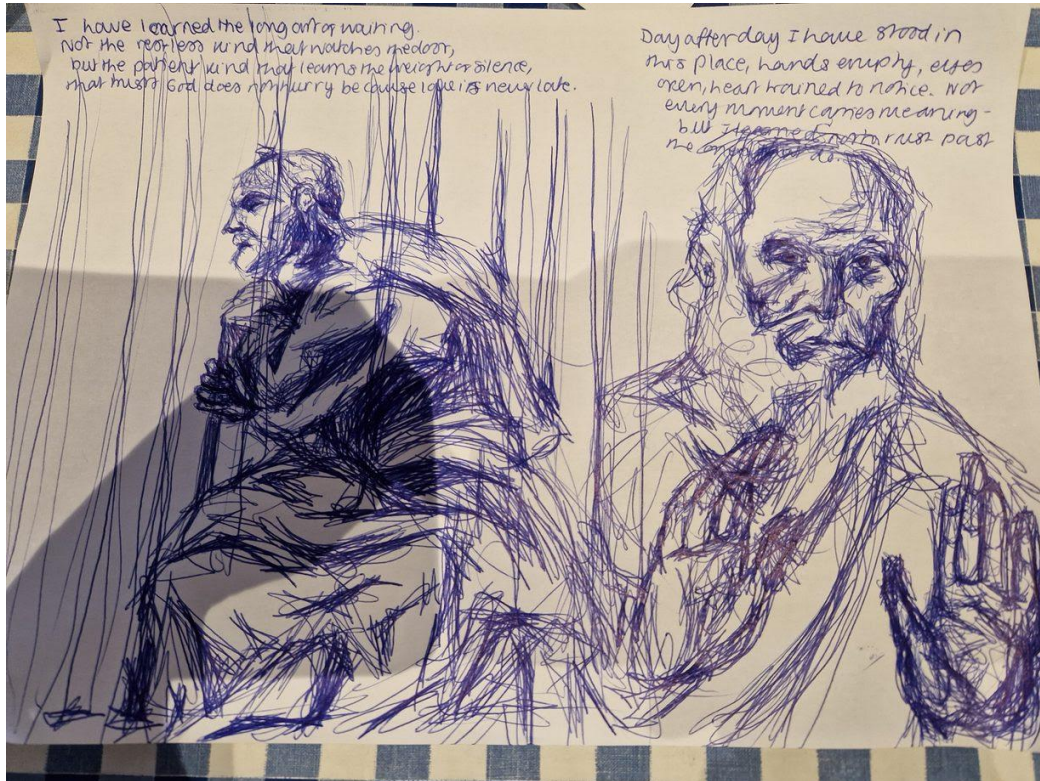 I have learned the long art of waiting.
Not the restless kind that watches the door,
but the patient kind that learns the weight of silence,
that trusts God does not hurry because love is never late.
Day after day I have stood in
this place, hands empty, eyes
open, heart trained to notice. Not
every moment carries meaning -
but I learned not to rush past
the
do.